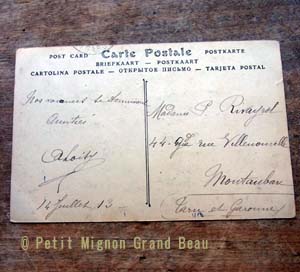 POST CARD Carte Postale POSTKARTE
BRIEFKAART — POSTKAART
CARTOLINA POSTALE — ОТКРЫТОЕ ПИСЬМО — TARJETA POSTAL
Nos
Amitiés
14 Juillet 13 -
Madame P.
44 rue Villenouvelle
Montauban
Tarn et Garonne
© Petit Mignon Grand Beau